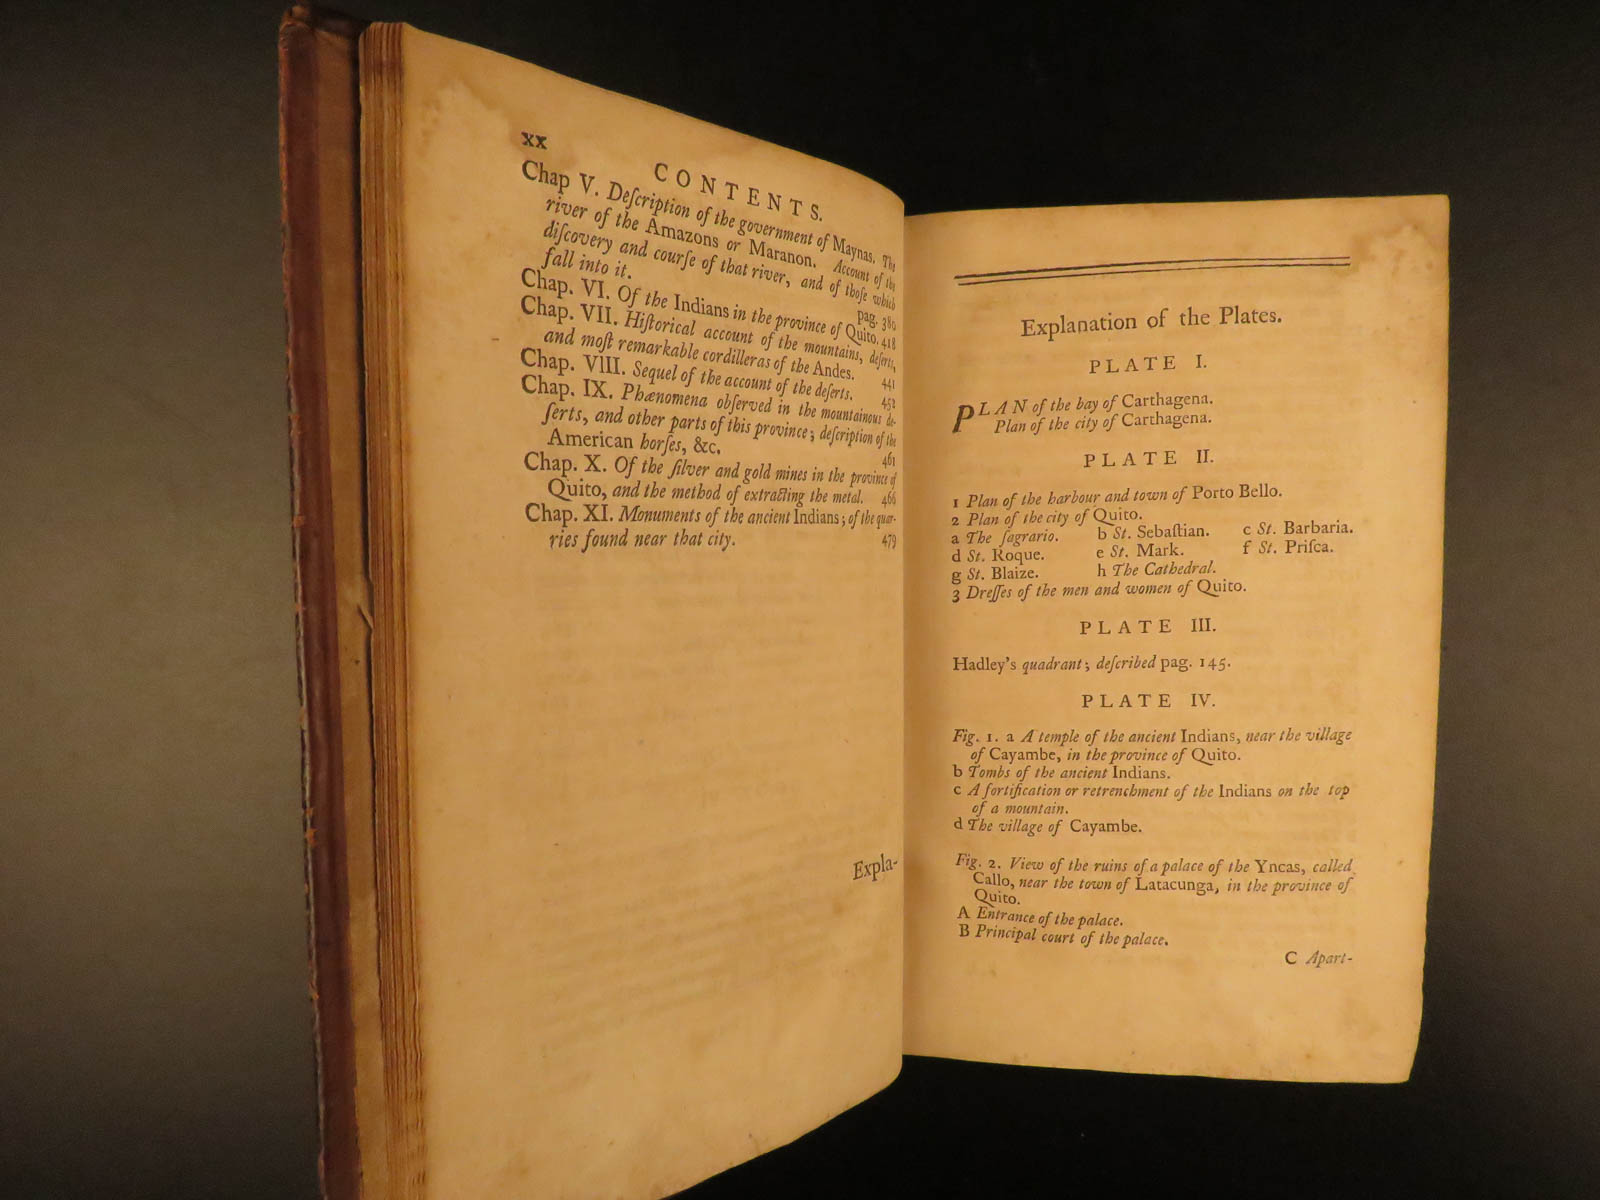 xx
CONTENTS.
Chap V. Deſcription of the government of Maynas. The
river of the Amazons or Maranon. Account of the
diſcovery and courſe of that river, and of thoſe which
fall into it. pag. 380
Chap. VI. Of the Indians in the province of Quito. 418
Chap. VII. Hiſtorical account of the mountains, deſerts,
and moſt remarkable cordilleras of the Andes. 441
Chap. VIII. Sequel of the account of the deſerts. 452
Chap. IX. Phænomena obſerved in the mountainous de-
ſerts, and other parts of this province; deſcription of the
American horſes, &c. 461
Chap. X. Of the ſilver and gold mines in the province of
Quito, and the method of extracting the metal. 466
Chap. XI. Monuments of the ancient Indians; of the quar-
ries found near that city. 479
Expla-
Explanation of the Plates.
PLATE I.
PLAN of the bay of Carthagena.
Plan of the city of Carthagena.
PLATE II.
1 Plan of the harbour and town of Porto Bello.
2 Plan of the city of Quito.
a The ſagrario. b St. Sebaſtian. c St. Barbaria.
d St. Roque. e St. Mark. f St. Priſca.
g St. Blaize. h The Cathedral.
3 Dreſſes of the men and women of Quito.
PLATE III.
Hadley's quadrant; deſcribed pag. 145.
PLATE IV.
Fig. 1. a A temple of the ancient Indians, near the village
of Cayambe, in the province of Quito.
b Tombs of the ancient Indians.
c A fortification or retrenchment of the Indians on the top
of a mountain.
d The village of Cayambe.
Fig. 2. View of the ruins of a palace of the Yncas, called
Callo, near the town of Latacunga, in the province of
Quito.
A Entrance of the palace.
B Principal court of the palace.
C Apart-